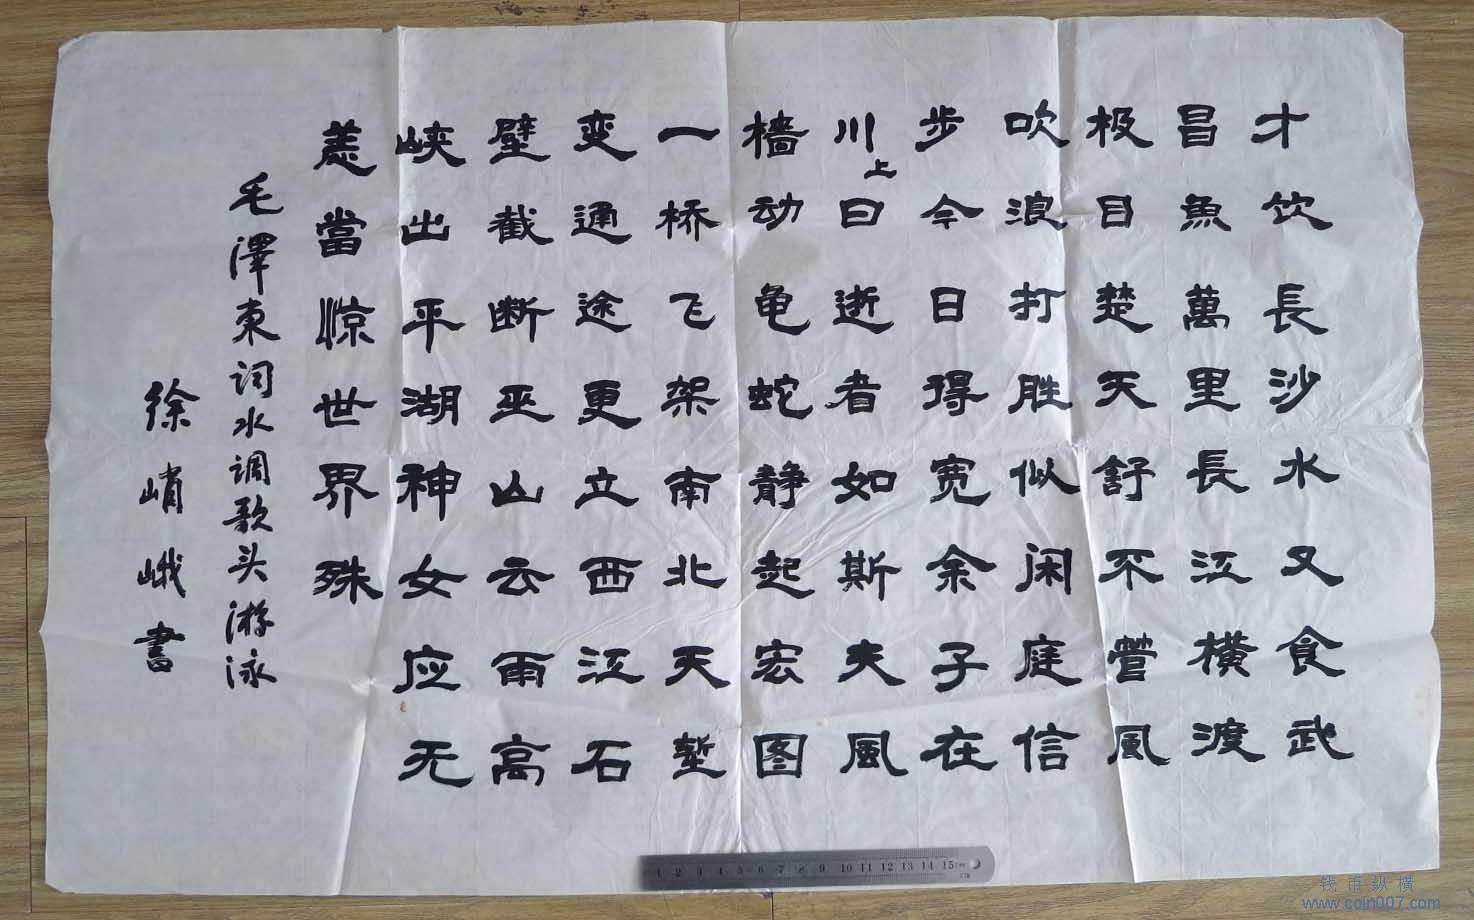 才饮長沙水又食武
昌魚萬里長江横渡
极目楚天舒不管風
吹浪打胜似闲庭信
步今日得宽余子在
川上曰逝者如斯夫風
樯动龟蛇静起宏图
一桥飞架南北天堑
变通途更立西江石
壁截断巫山云雨高
峡出平湖神女应无
恙當惊世界殊
毛澤東词水调歌头游泳
徐峭峨書
1 2 3 4 5 6 7 8 9 10 11 12 13 14 15
钱币纵横
www.coin007.com